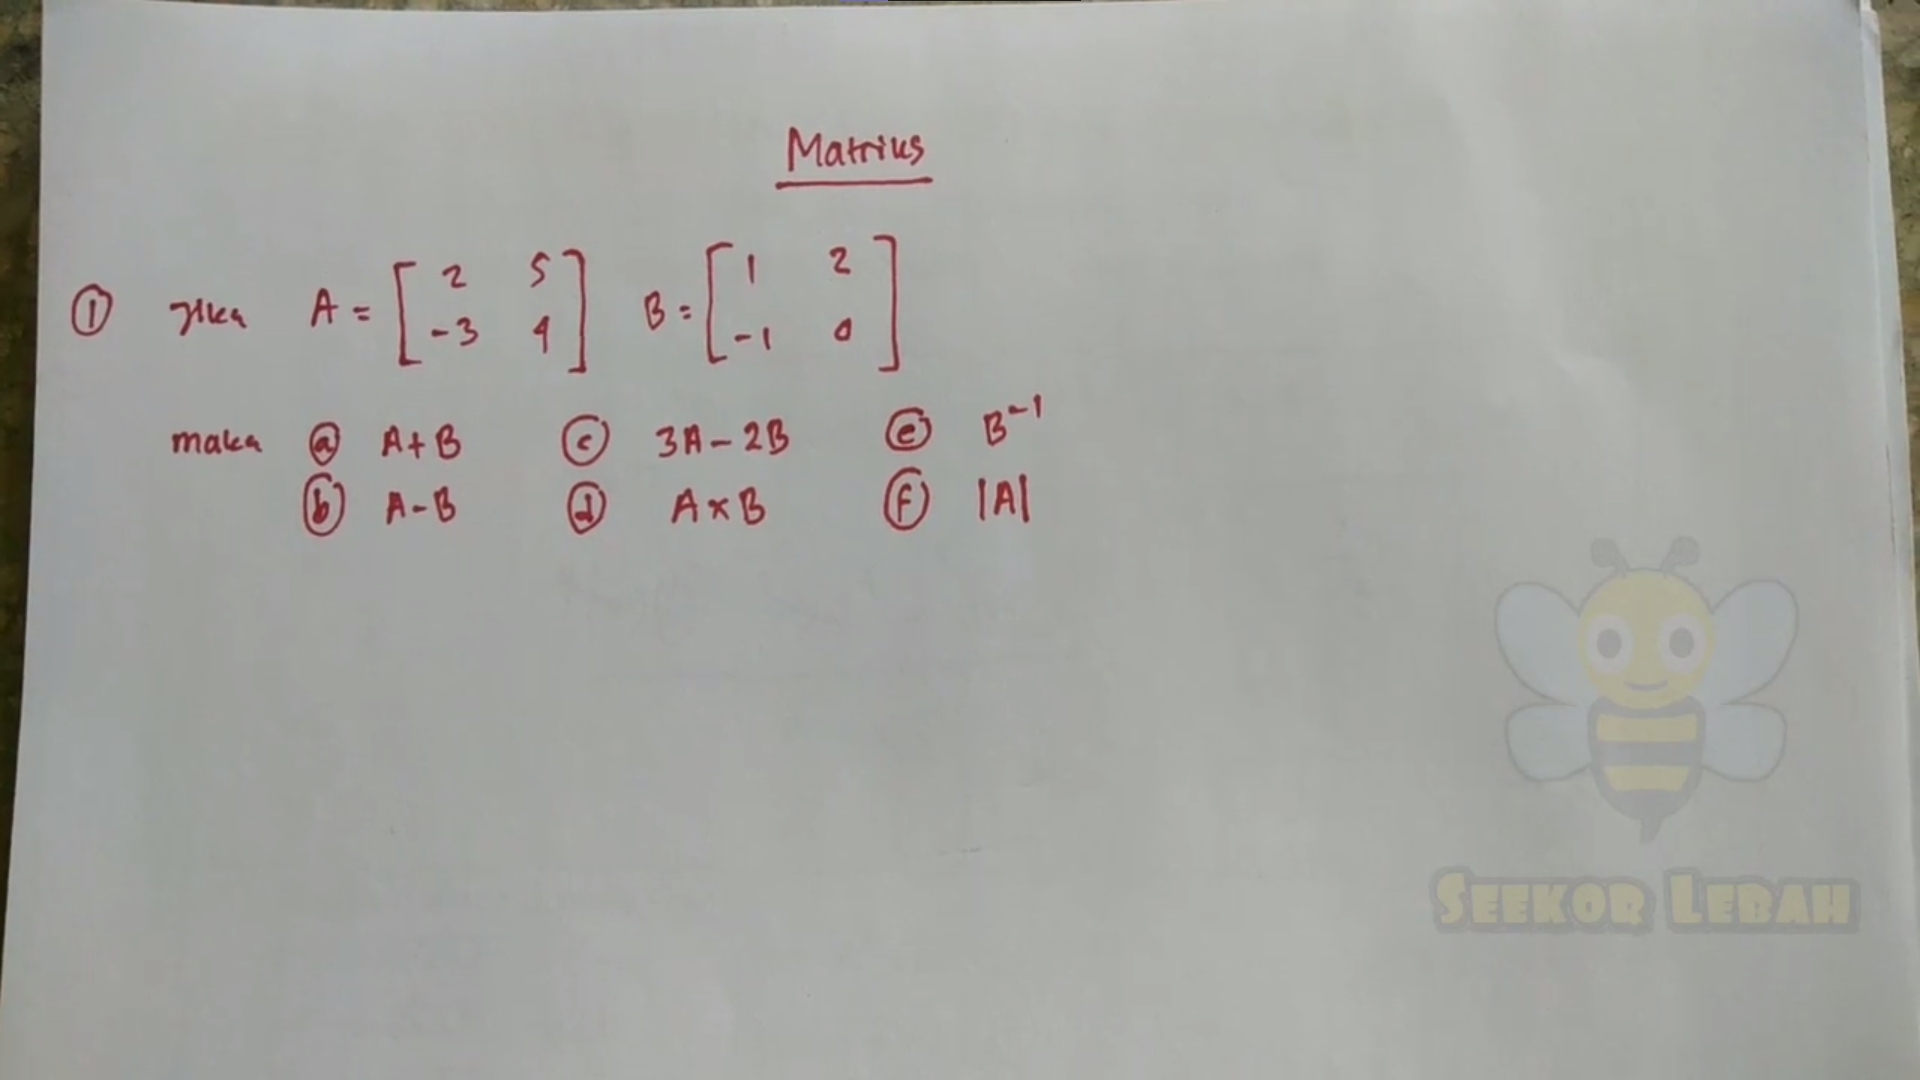 Matriks
① Jika A = [ 2 5 ] B = [ 1 2 ]
[ -3 4 ] [ -1 0 ]
maka ⓐ A+B ⓒ 3A-2B ⓔ B⁻¹
ⓑ A-B ⓓ A×B ⓕ |A|
SEEKOR LEBAH